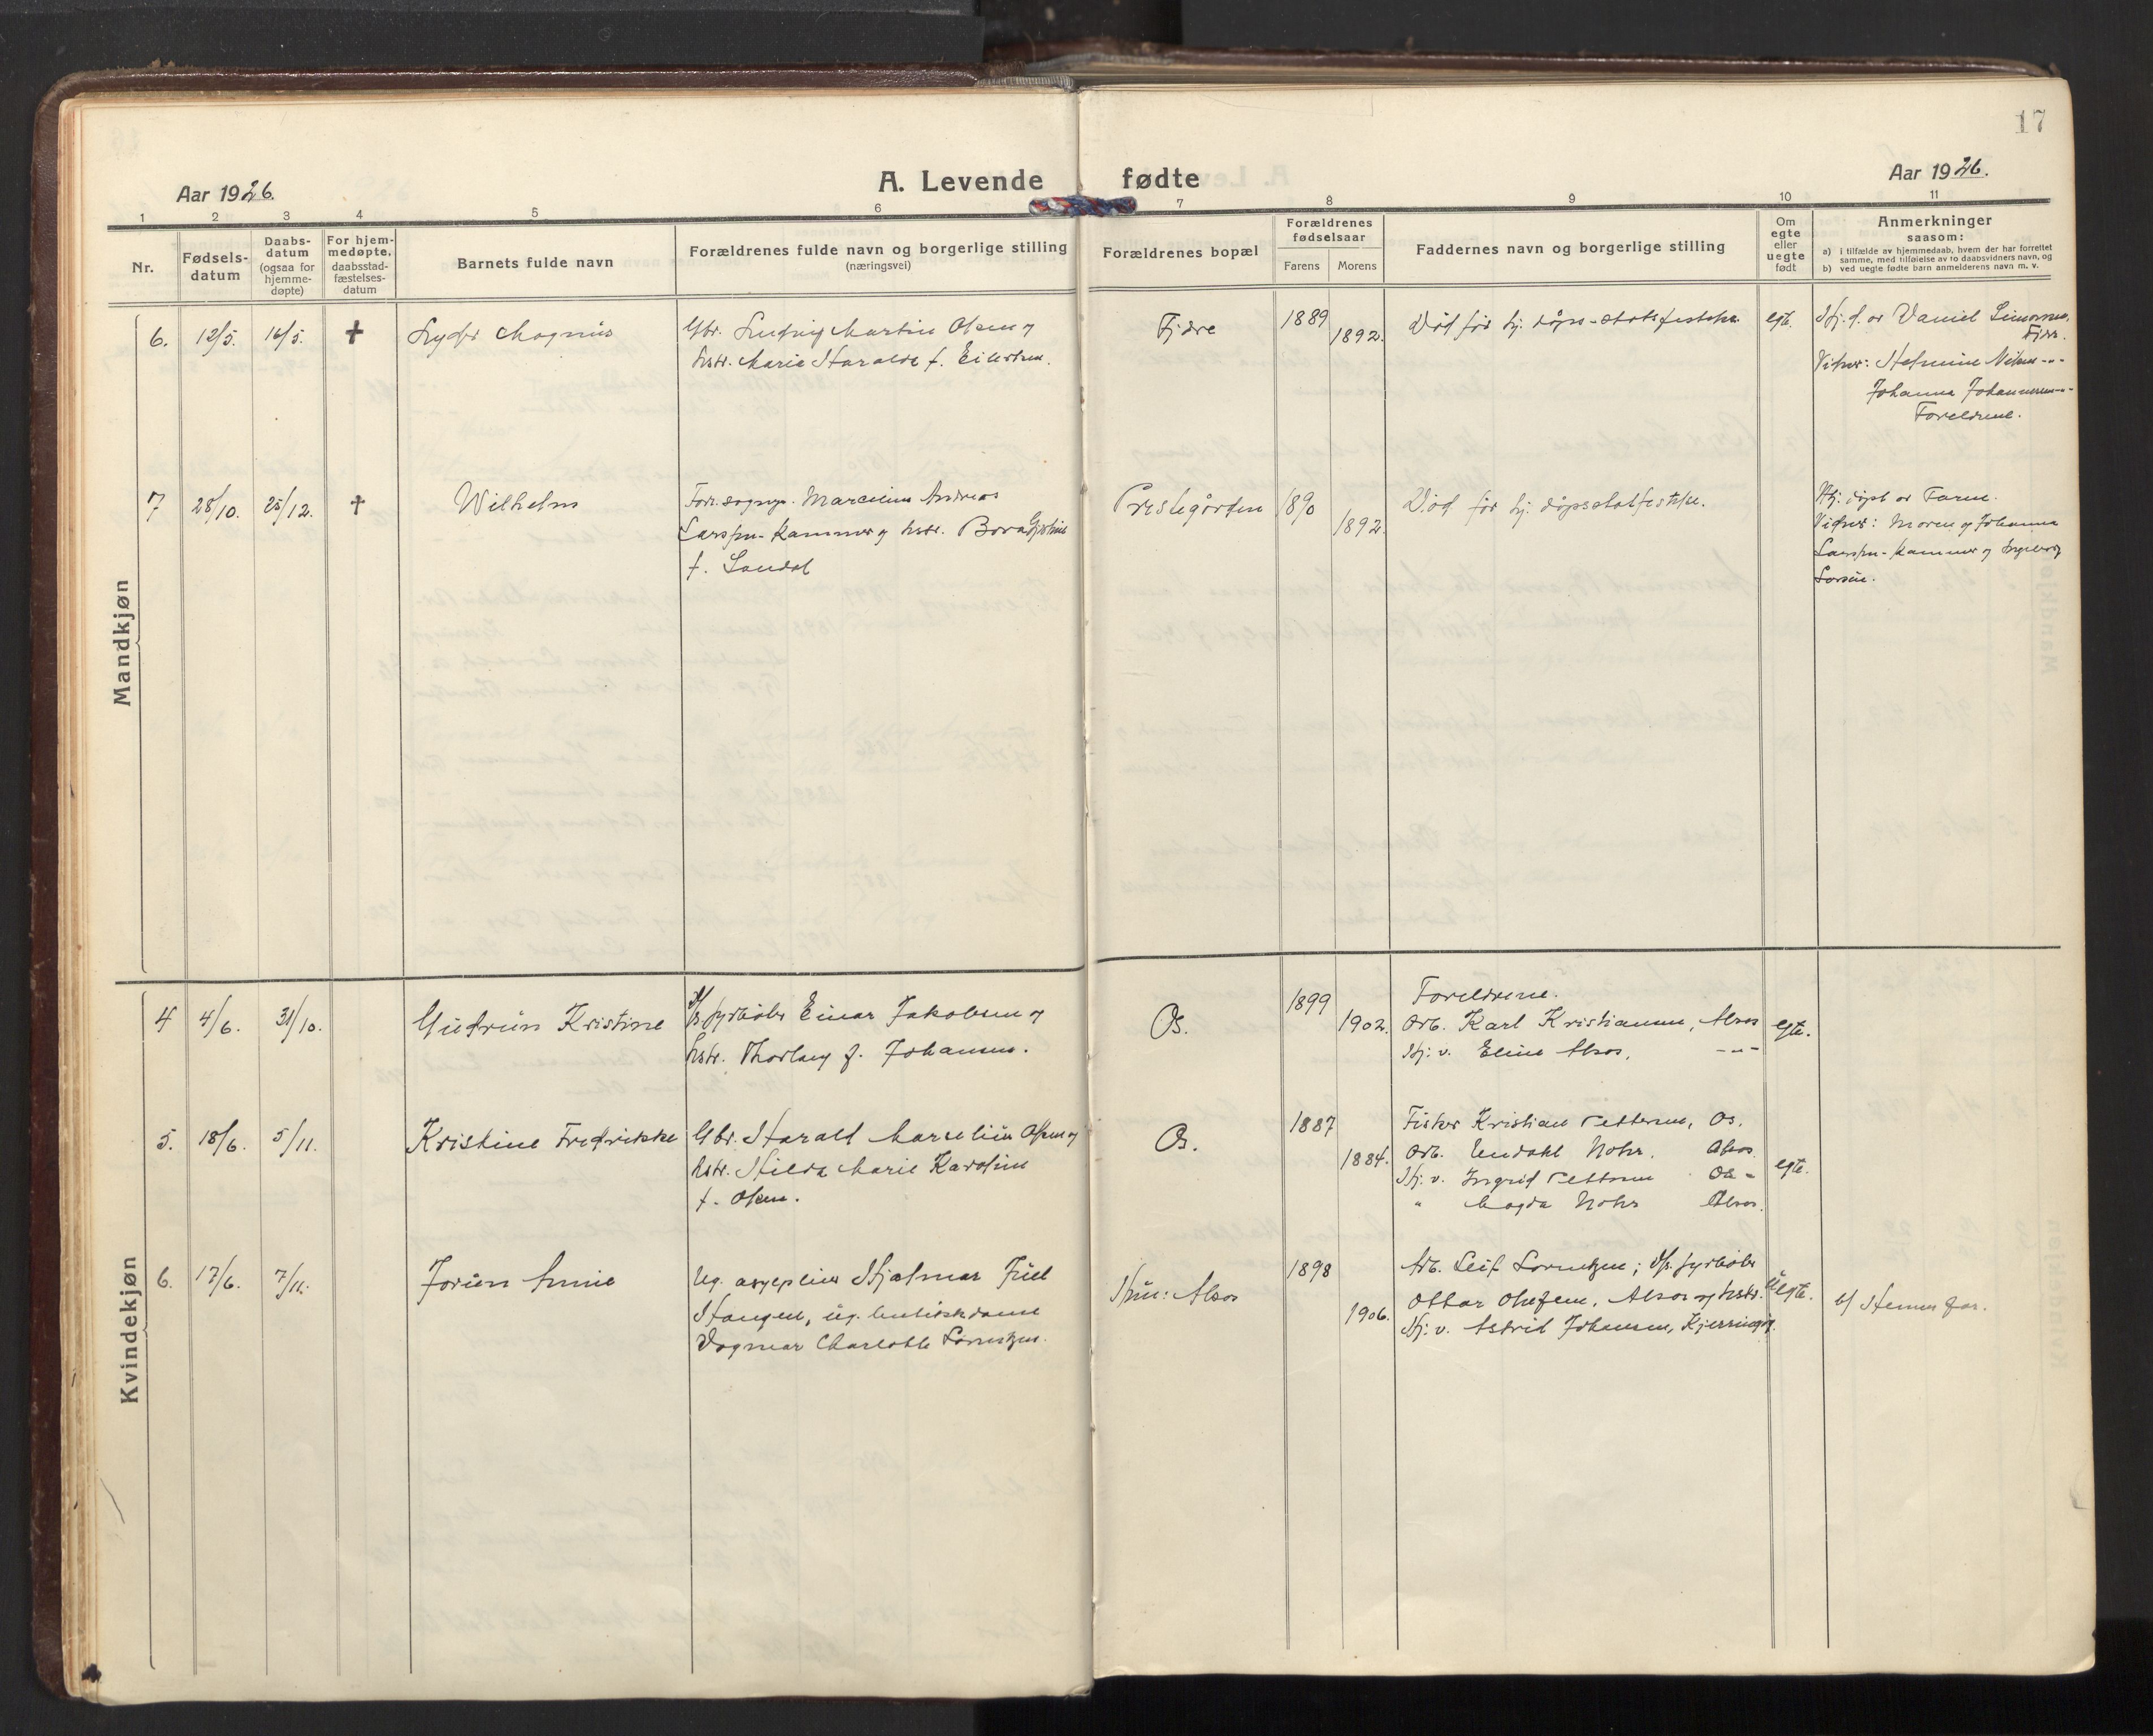 17
Aar 1926.
A. Levende fødte
Aar 1926.
1 2 3 4 5 6 7 8 9 10 11
Nr.
Fødsels-
datum
Daabs-
datum
(ogsaa for
hjemme-
døpte)
For hjem-
medøpte,
daabsstad-
fæstelses-
datum
Barnets fulde navn
Forældrenes fulde navn og borgerlige stilling
(næringsvei)
Forældrenes bopæl
Forældrenes
fødselsaar
Farens Morens
Faddernes navn og borgerlige stilling
Om
egte
eller
uegte
født
Anmerkninger
saasom:
a) i tilfælde av hjemmedaab, hvem der har forrettet
samme, med tilføielse av to daabsvidners navn, og
b) ved uegte fødte barn anmelderens navn m. v.
Mandkjøn
6. 12/5. 16/5. † Lyder Magnus
Gbr. Ludvig Martin Olsen og
hstr. Marie Haralda f. Eilertsen.
Fjære
1889
1892.
Død før hj. døps-statsfestelse.
egte.
Hj. d. av Daniel Simonsen,
Fjær.
Vitner: Nilsen -"-
Johanna Johannessen -"-
Foreldrene.
7 28/10. 25/12. † Wilhelm
For. sogne. Marcelius Andreas
Larssen-Kammer og hstr. Bora
f. Sandal
Prestegården
1890
1892.
Død før hj. døpsstatfestelse.
Hj. døpt av Faren.
Vidner: Moren og Johanna
Larssen-Kammer og Ingeborg
Kvindekjøn
4 4/6. 31/10. Gudrun Kristine
D/s fyrbøter Einar Jakobsen og
hstr. Thorlaug f. Johansen.
Os.
1899
1902.
Foreldrene.
Arb. Karl Kristiansen, Alsos
Hj: v. Eline Alsos, -"-
egte.
5. 18/6. 5/11. Kristine Fredrikke
Gbr. Harald Marcelius Olsen og
hstr. Hilda Marie Karoline
f. Olsen.
Os.
1887
1884.
Fisker Kristian Pettersen, Os.
Arb. Endahl Nohr, Alsos.
Hj: v. Ingrid Pettersen Os -
" Magda Nohr Alsos.
egte.
6. 17/6. 7/11. Jorun Annie
Ug. Hjalmar Friel
Stangen, ug. butikkdame
Dagmar Charlotte Lorentzen.
Alsos
1898
1906.
Arb. Leif Lorentzen; D/s. fyrbøter
Ottar Olufsen, Alsos og hstr.
Hj: v. Astrid Johansen, Kjerringøy.
Uegte.
b/ Hennes far.